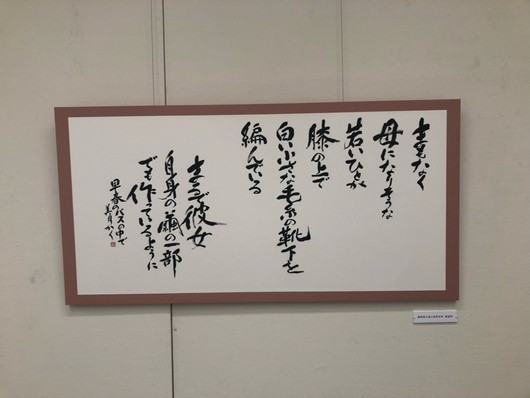 まもなく
母になりそうな
若いひとが
膝の上で
白い小さな毛糸の靴下を
編んでいる
まるで彼女
自身の繭の一部
でも作っているように
早春のバスの中で
美月かく